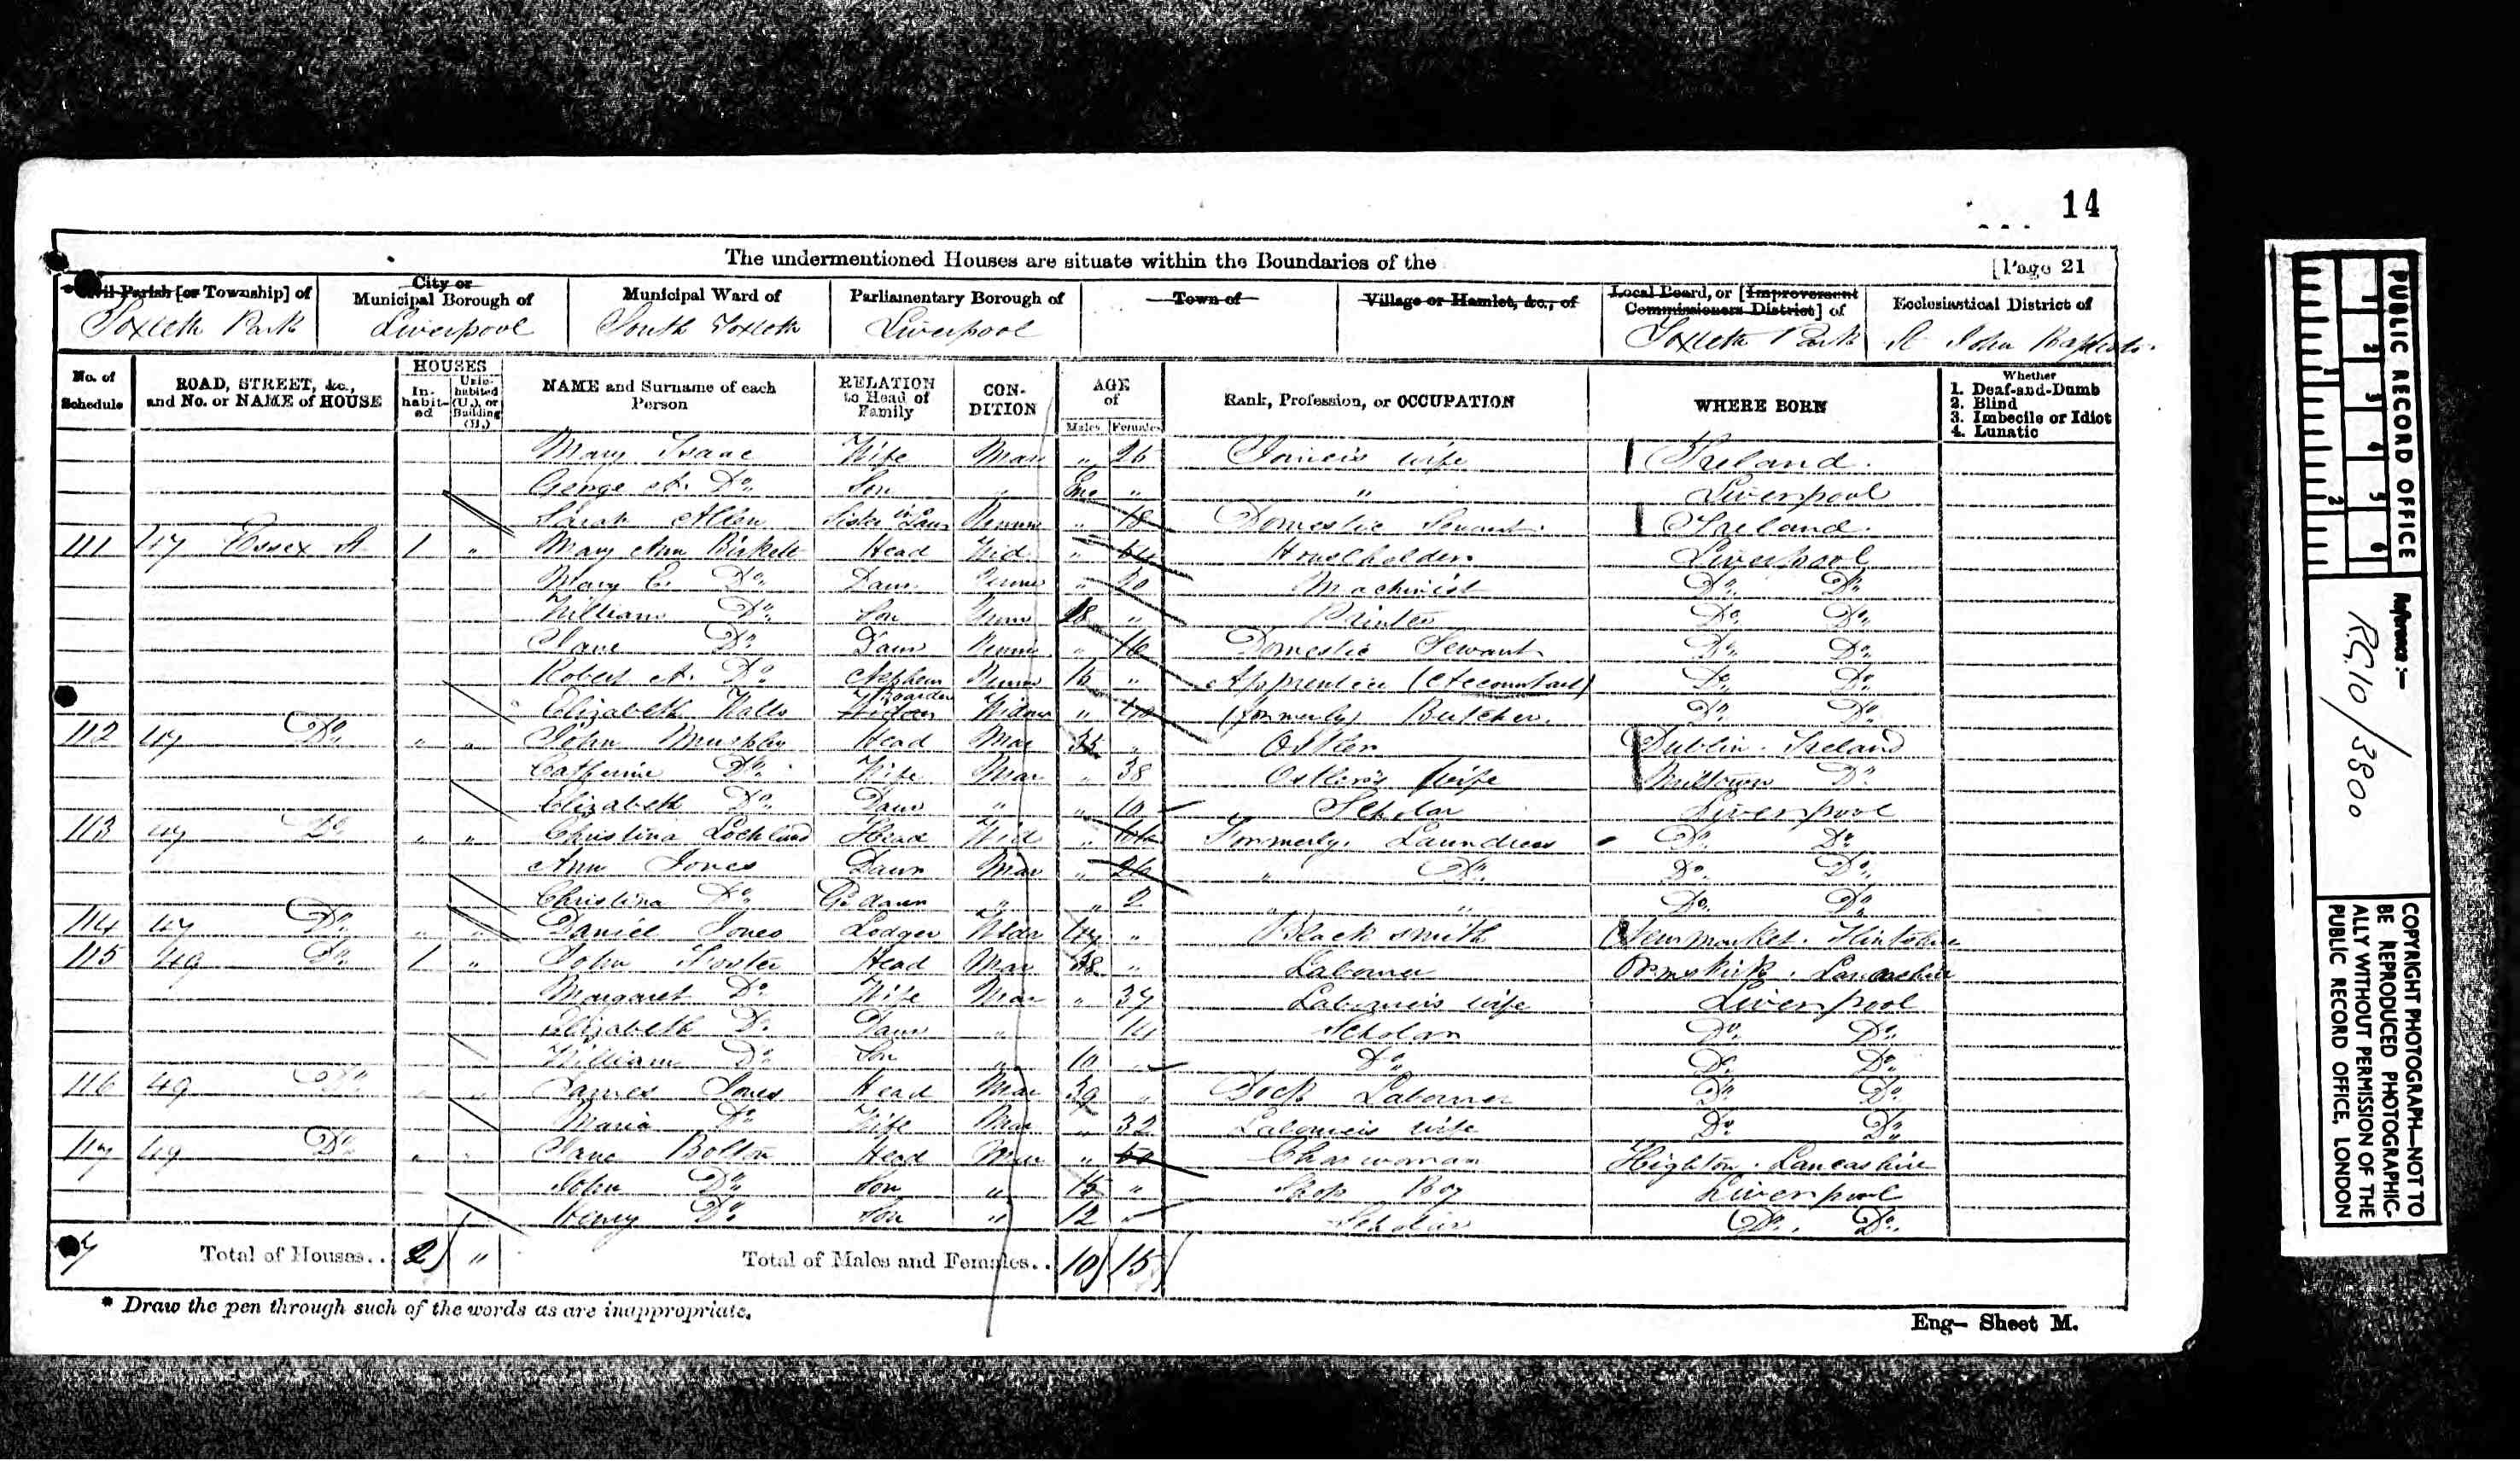 14
The undermentioned Houses are situate within the Boundaries of the
[Page 21
Civil Parish [or Township] of
City or Municipal Borough of
Municipal Ward of
Parliamentary Borough of
Town of
Village or Hamlet, &c., of
Local Board, or [Improvement Commissioners District] of
Ecclesiastical District of
Toxteth Park
Liverpool
South Toxteth
Liverpool
Toxteth Park
St John Baptists
No. of Schedule
ROAD, STREET, &c., and No. or NAME of HOUSE
HOUSES
In-habit-ed
Unin-habited (U.), or Building (B.)
NAME and Surname of each Person
RELATION to Head of Family
CON-DITION
AGE of
Males
Females
Rank, Profession, or OCCUPATION
WHERE BORN
Whether
1. Deaf-and-Dumb
2. Blind
3. Imbecile or Idiot
4. Lunatic
Mary Isaac Wife Mar " 26 wife Ireland.
George A. Do. Son " mo " " Liverpool
Sarah Allen Sister in Law " 18 Domestic Servant. Ireland.
111 47 Essex St 1 " Mary Ann Birkett Head Wid " Householder. Liverpool
Mary E. Do. Daur " 20 Machinist Do. Do.
William Do. Son Unm 18 " Printer Do. Do.
Jane Do. Daur " 16 Domestic Servant Do. Do.
Robert A. Do. Nephew 15 " Apprentice (Accountant) Do. Do.
Elizabeth Walls Boarder Widow " 40 (formerly) Butcher. Do. Do.
112 47 Do. " " John Murphy Head Mar 35 " Ostler Dublin. Ireland
Catherine Do. Wife Mar " 38 Ostler's Wife Milltown Do.
Elizabeth Do. Daur " " 10 Scholar Liverpool
113 47 Do. " " Christina Head Wid " Formerly. Laundress Do. Do.
Ann Jones Daur Mar " 26 " Do. Do. Do.
Christina Do. G. daur " " 2 " " Do. Do.
114 47 Do. " " Daniel Jones Lodger Widr 47 " Black smith Newmarket. Flintshire
115 49 Do. 1 " John Foster Head Mar 38 " Labourer Ormskirk. Lancashire
Margaret Do. Wife Mar " 37 Labourer's wife Liverpool
Elizabeth Do. Daur " 14 Scholar Do. Do.
William Do. Son " 10 " Do. Do. Do.
116 49 Do. " " James Jones Head Mar 39 " Dock Labourer Do. Do.
Maria Do. Wife Mar " 32 Labourer's wife Do. Do.
117 49 Do. " " Jane Bolton Head Mar " Charwoman Highton. Lancashire
John Do. Son " 15 " Shop Boy Liverpool
Henry Do. Son " 12 " Scholar Do. Do.
Total of Houses.. 2 "
Total of Males and Females.. 10 15
* Draw the pen through such of the words as are inappropriate.
Eng— Sheet M.
PUBLIC RECORD OFFICE
1 2 3 4 5 6
1 2
Reference :—
R.G.10/3800
COPYRIGHT PHOTOGRAPH—NOT TO BE REPRODUCED PHOTOGRAPHIC-ALLY WITHOUT PERMISSION OF THE PUBLIC RECORD OFFICE, LONDON